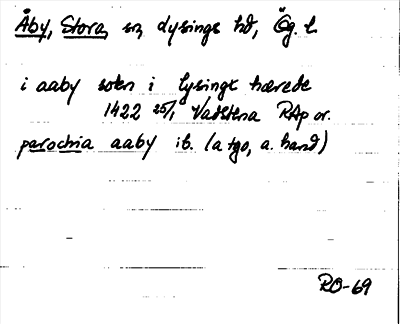 Åby, Stora, sn, Lysings hd, Ög. l.
i aaby sokn i lysingx hærede
1422 25/1 Vadstena RAp or.
parochia aaby ib. (a tgo, a. hand)
RO-69